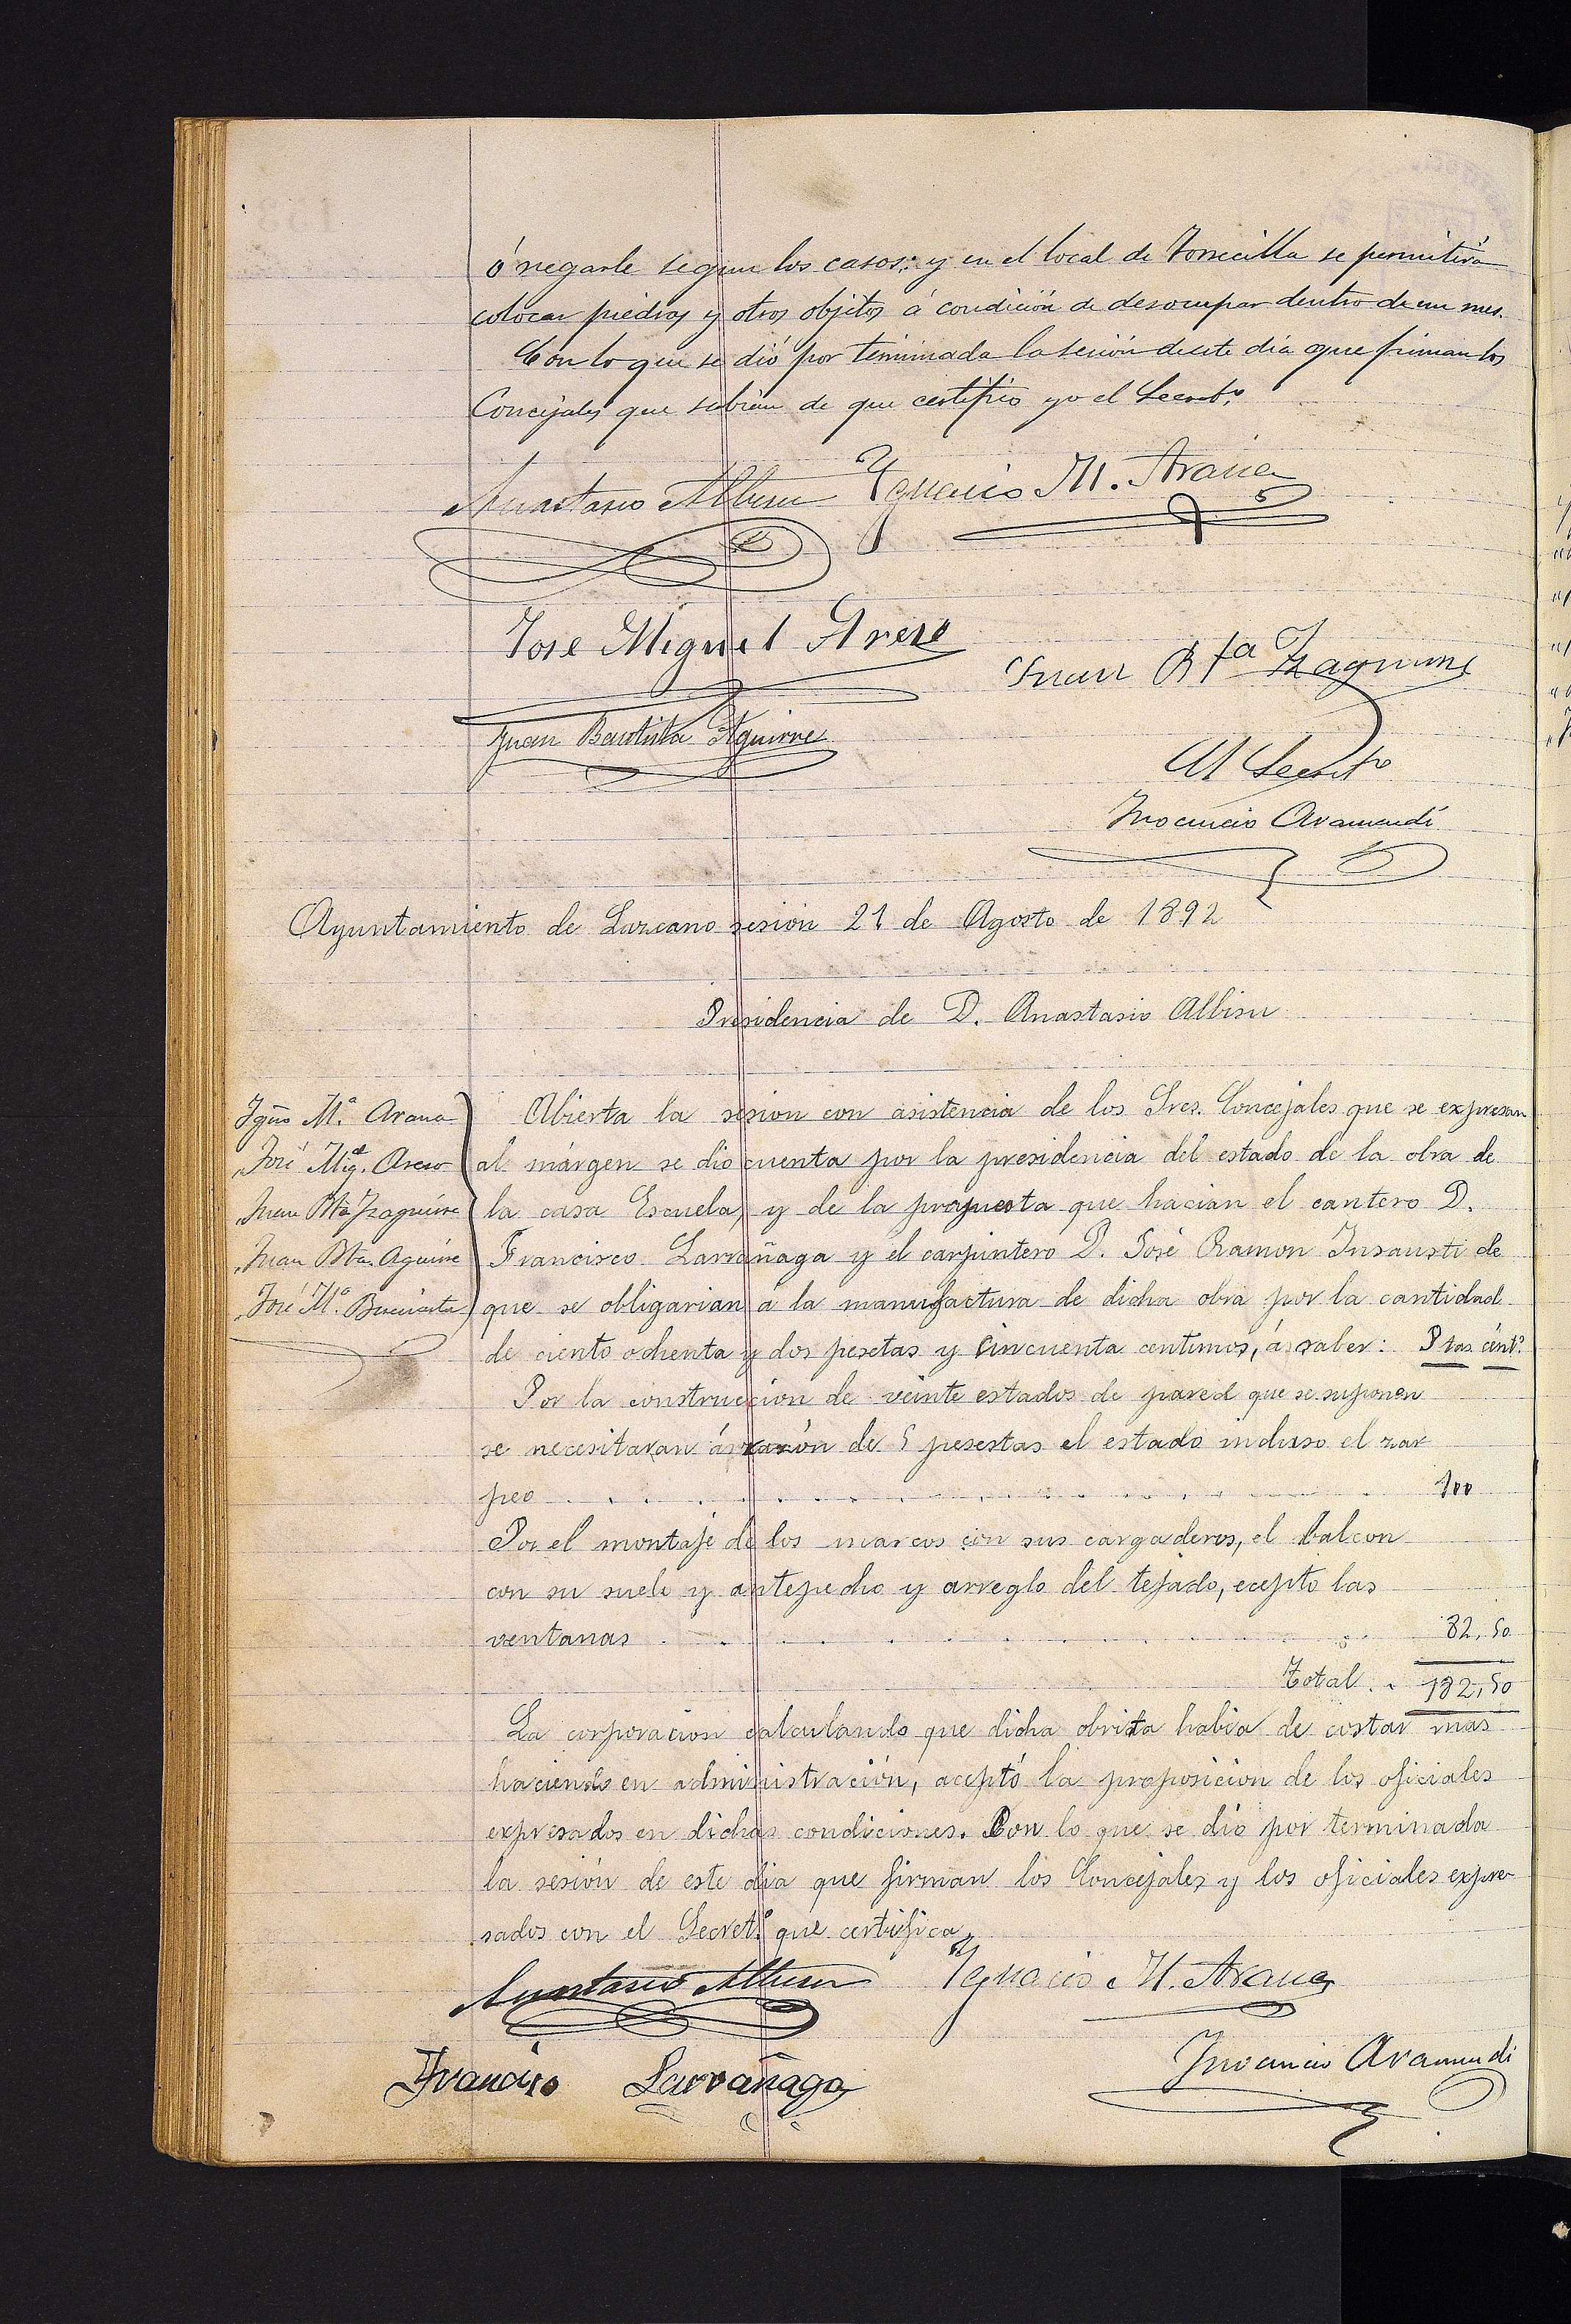 ó negarle segun los casos: y en el local de Torrecilla se permitirá
colocar piedras y otros objetos á condición de desocupar dentro de un mes.
Con lo que se dió por terminada la sesión de este día que firman los
Concejales que sabian de que certifico yo el Secretº
Anastasio Albisu Ygnacio M. Arana
Jose Miguel Areso
Juan Bta Izaguirre
Juan Bautista Aguirre
El Secretº
Inocencio Aramendi
Ayuntamiento de Lazcano sesion 21 de Agosto de 1892
Presidencia de D. Anastasio Albisu
Igno Mª Arana
José Migl. Areso
Juan Bta Izaguirre
Juan Bta. Aguirre
José Mª
Abierta la sesion con asistencia de los Sres. Concejales que se expresan
al márgen se dio cuenta por la presidencia del estado de la obra de
la casa Escuela, y de la propuesta que hacian el cantero D.
Francisco Larrañaga y el carpintero D. José Ramon Insausti de
que se obligarian á la manufactura de dicha obra por la cantidad
de ciento ochenta y dos pesetas y cincuenta centimos, á saber: Ptas cént.s
Por la construccion de veinte estados de pared que se suponen
se necesitaran á razón de 5 pesestas el estado incluso el zar
peo . . . . . . . . . . 100
Por el montaje de los marcos con sus cargaderos, el balcon
con su suelo y antepecho y arreglo del tejado, ecepto las
ventanas . . . . . . . . . . 82,50
Total . . 182,50
La corporacion calculando que dicha obrita habia de costar mas
haciendo en administración, aceptó la proposicion de los oficiales
expresados en dichas condiciones. Con lo que se dio por terminada
la sesión de este dia que firman los Concejales y los oficiales expre-
sados con el Secretº que certifica
Anastasio Albisu Ygnacio M. Arana
Inocencio Aramendi
Francisco Larrañaga